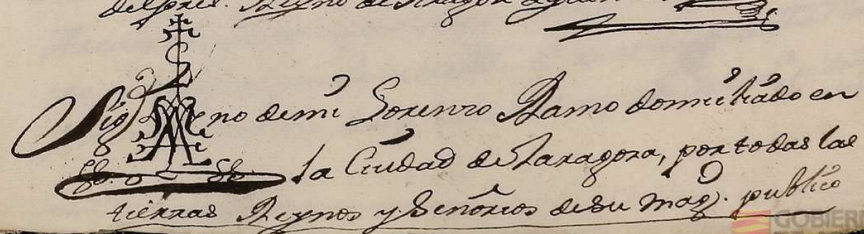 del pres.te Reyno de Aragon
Sig no de mi Lorenzo Ramo domiciliado en
la Ciudad de Zaragoza, por todas las
tierras Reynos y Señorios de Su Mag.d publico
GOBIER